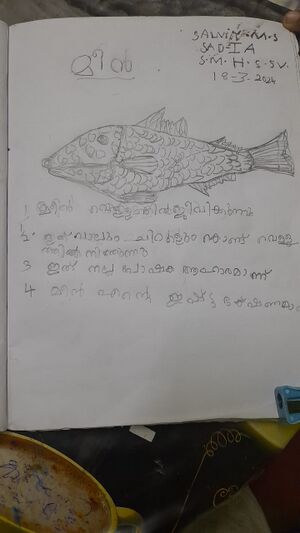 SALVIN.M.S
SAD-IA
S.M.H.S.SV.
18-3.2024
മീൻ
1. മീൻ വെള്ളത്തിൽ ജീവിക്കുന്നു
2. ഇത് വാലും ചിറകും കൊണ്ട് വെള്ള
ത്തിൽ നീന്തുന്നു
3 ഇത് നല്ല പോഷക ആഹാരമാണ്
4. മീൻ എന്റെ ഇഷ്ട്ട ഭക്ഷണമാ